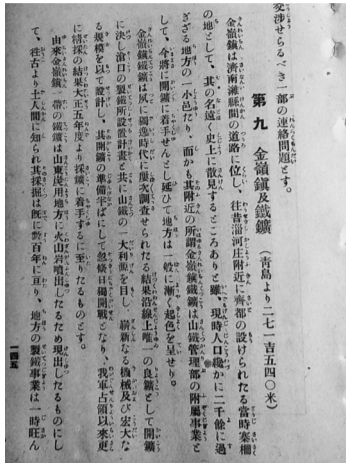 交渉せらるべき一部の連絡問題とす。
第九　金嶺鎭及鐵鑛（靑島より二七一吉五四〇米）
金嶺鎭は濟南濰縣間の道路に位し、往昔淄河庄附近に齊都の設けられたる當時寨柵
の地として、其の名遠く史上に散見するところありと雖、現時人口纔かに二千餘に過
ぎざる地方の一小邑たり、而かも其附近の所謂金嶺鎭鐵鑛は山鐵管理部の附屬事業と
して、今將に開鑛に着手せんとし延ひて地方は一般に漸く起色を呈せり。
金嶺鎭鐵鑛は夙に獨逸時代に屢次調査せられたる結果沿線上唯一の良鑛として開鑛
に決し滄口の製鐵所設置計畫と共に山鐵の一大利源を目し、嶄新なる機械及び宏大な
る規模を以て設計し、其開鑛の準備半ばにして忽然日獨開戰となり、我軍占領以來更
に精採の結果大正五年度より採鑛に着手するに至りたるものとす。
由來金嶺鎭一帶の鐵鑛は山東炭用地方に火山岩噴出したるため現出したるものにし
て、往古より土人間に知られ其採掘は旣に數百年に亘り、地方の製鐵事業は一時旺ん
一四五